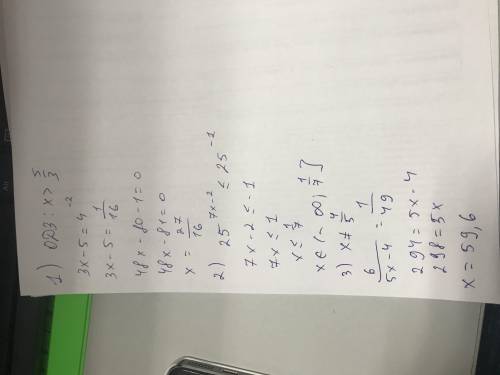 1) ОДЗ: x > 5/3
3x - 5 = 4^-2
3x - 5 = 1/16
48x - 80 - 1 = 0
48x - 81 = 0
x = 27/16
2) 25^7x-2 ≤ 25^-1
7x - 2 ≤ -1
7x ≤ 1
x ≤ 1/7
x ∈ (-∞; 1/7]
3) x ≠ 4/5
6/5x-4 = 1/49
294 = 5x - 4
298 = 5x
x = 59,6